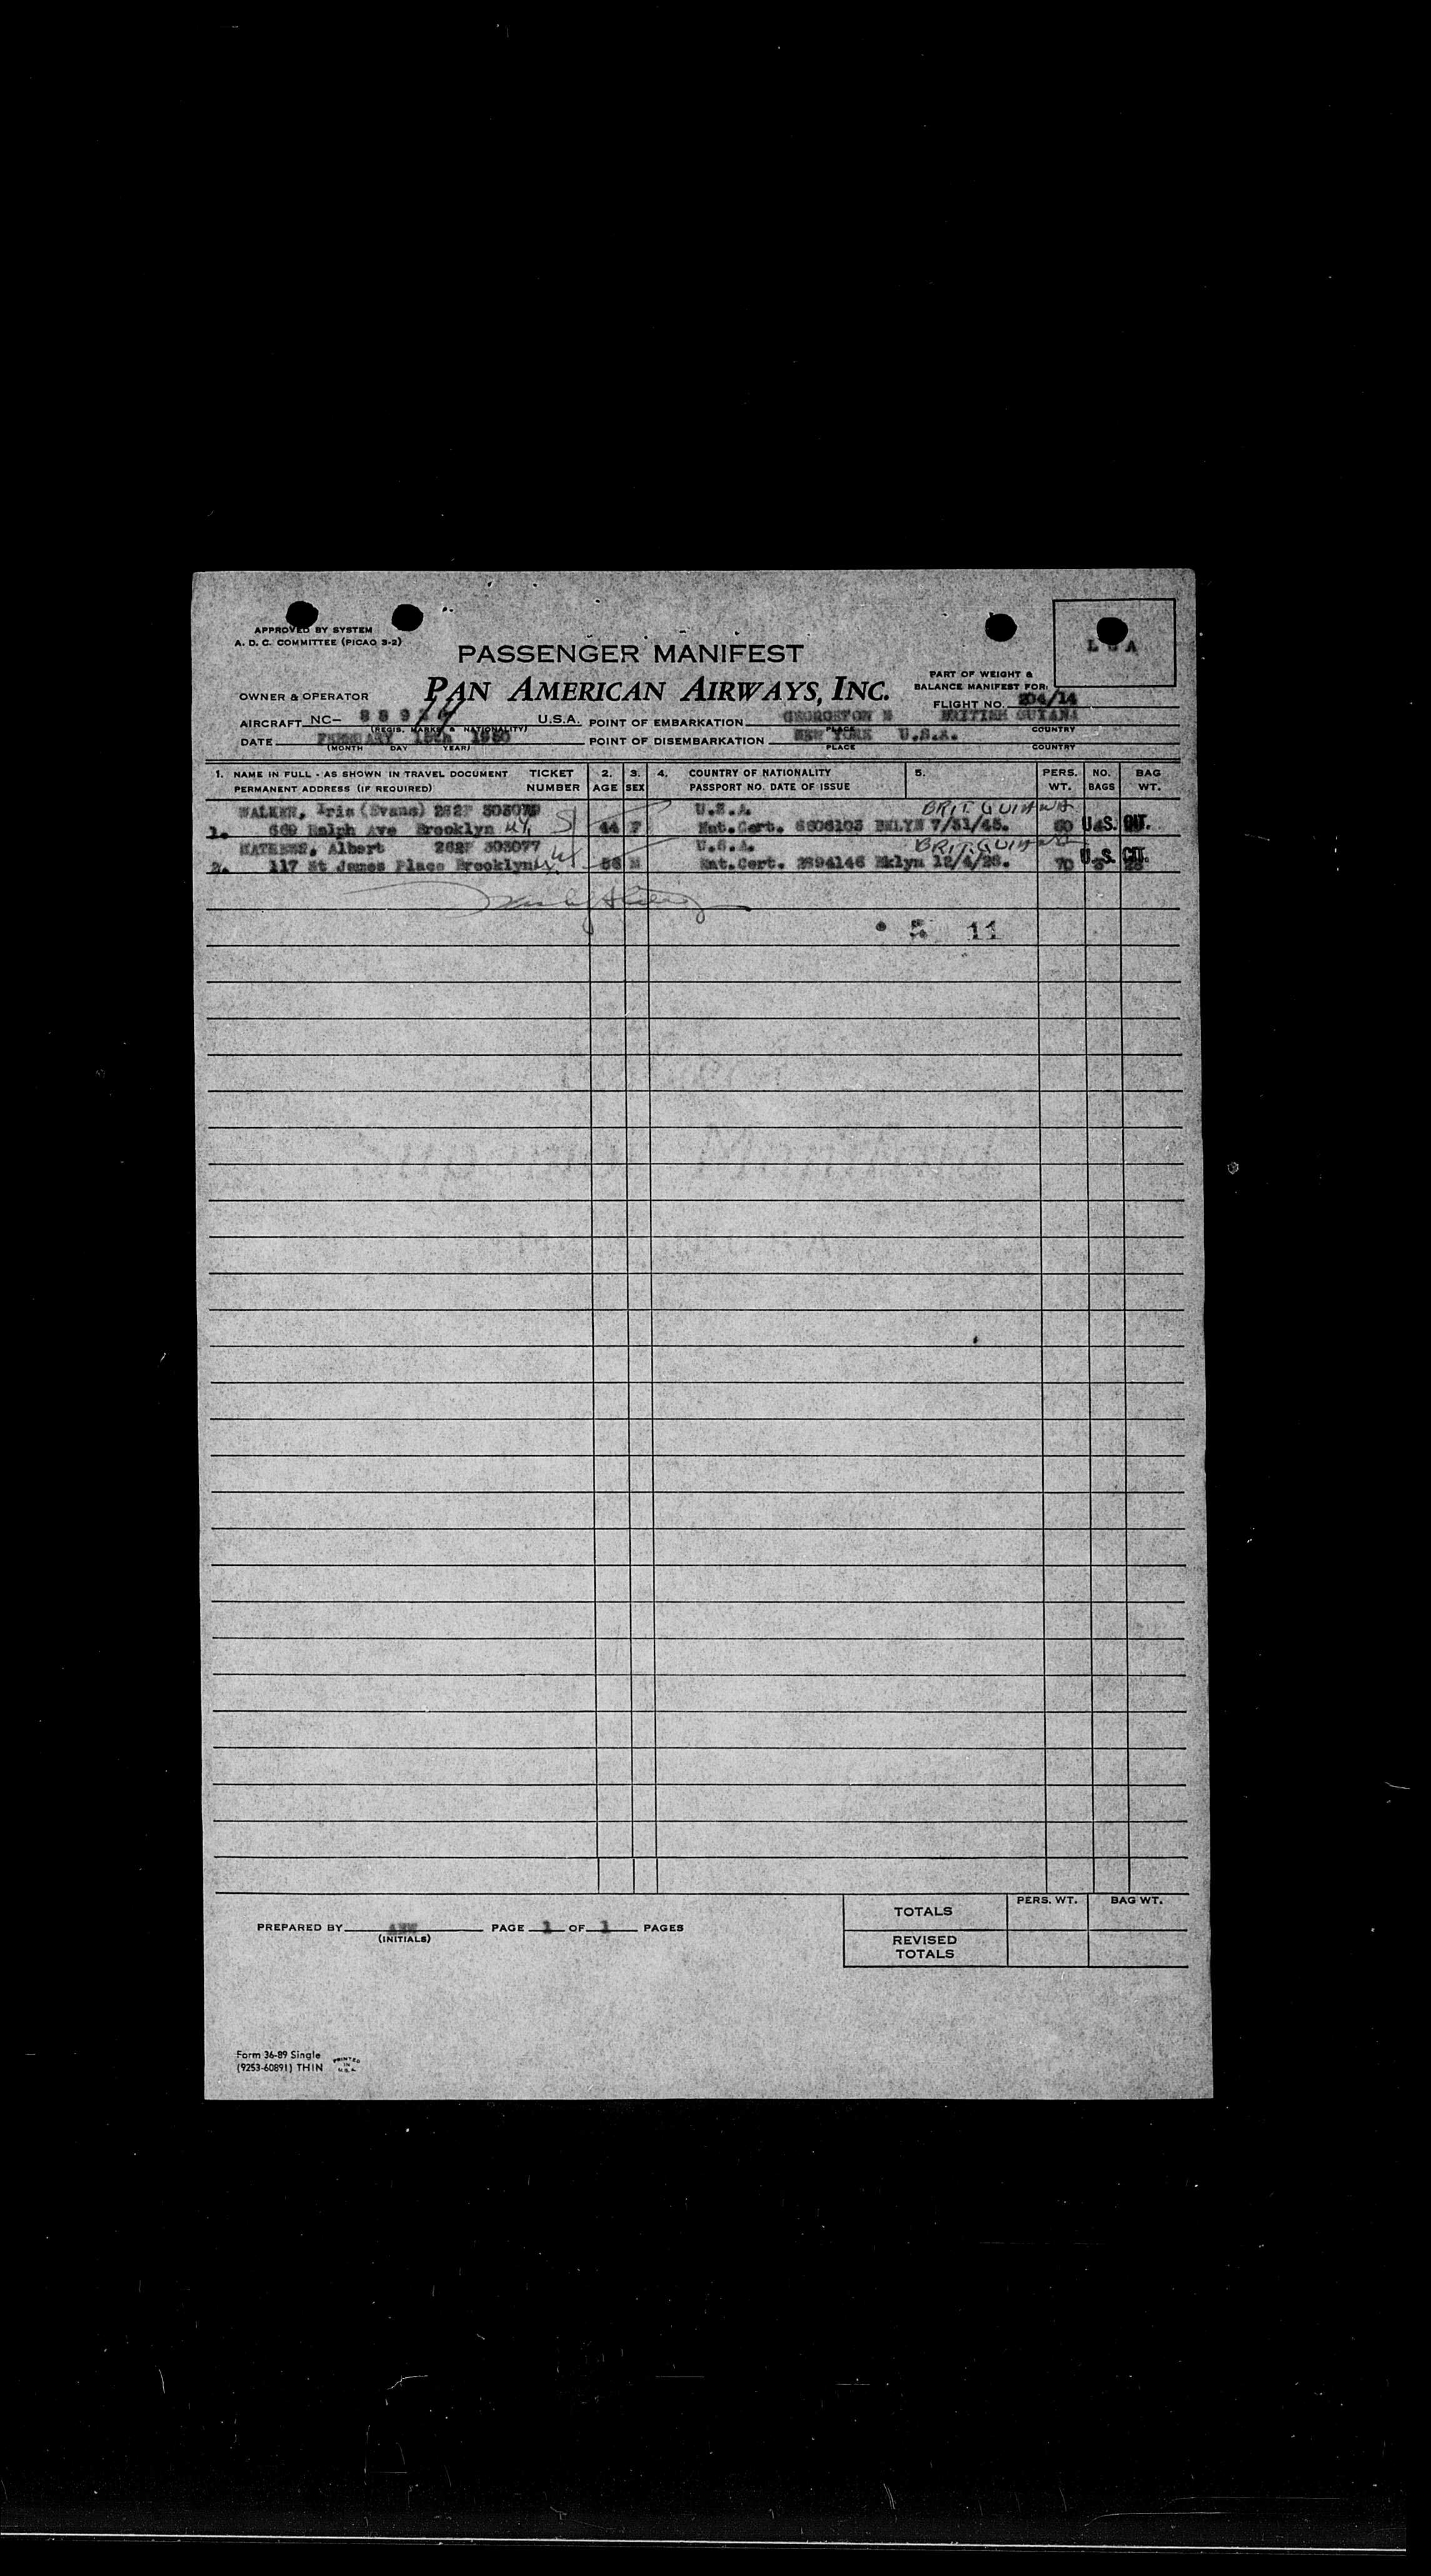 APPROVED BY SYSTEM
A. D. C. COMMITTEE (PICAO 3-2)
L G A
PASSENGER MANIFEST
PART OF WEIGHT &
BALANCE MANIFEST FOR:
OWNER & OPERATOR PAN AMERICAN AIRWAYS, INC.
FLIGHT NO. 204/14
AIRCRAFT NC- U.S.A. POINT OF EMBARKATION GEORGETOWN BRITISH GUIANA
(REGIS. MARKS & NATIONALITY) PLACE COUNTRY
DATE FEBRUARY 1950 POINT OF DISEMBARKATION NEW YORK U.S.A.
(MONTH DAY YEAR) PLACE COUNTRY
1. NAME IN FULL - AS SHOWN IN TRAVEL DOCUMENT TICKET 2. 3. 4. COUNTRY OF NATIONALITY 5. PERS. NO. BAG
PERMANENT ADDRESS (IF REQUIRED) NUMBER AGE SEX PASSPORT NO. DATE OF ISSUE WT. BAGS WT.
WALKER, Iris (Evans) 262F U.S.A. BRIT. GUIANA
1. 669 Ralph Ave Brooklyn NY 44 F Nat.Cert. 6606103 BKLYN 7/31/45. 60 U.S. CIT.
MATHEWS, Albert 262F 303077 U.S.A. BRIT. GUIANA
2. 117 St James Place Brooklyn 56 M Nat.Cert. 2894146 Bklyn 12/4/28. 70 U.S. CIT.
5 11
PERS. WT. BAG WT.
TOTALS
PREPARED BY PAGE 1 OF 1 PAGES
(INITIALS)
REVISED
TOTALS
Form 36-89 Single
(9253-60891) THIN
PRINTED
IN
U.S.A.